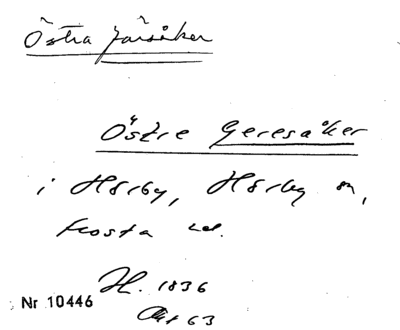 Östra Järsåker
Östre Geresåker
i Hörby, Hörby sn,
Frosta hd.
H. 1836
Nr 10446
Akt 63